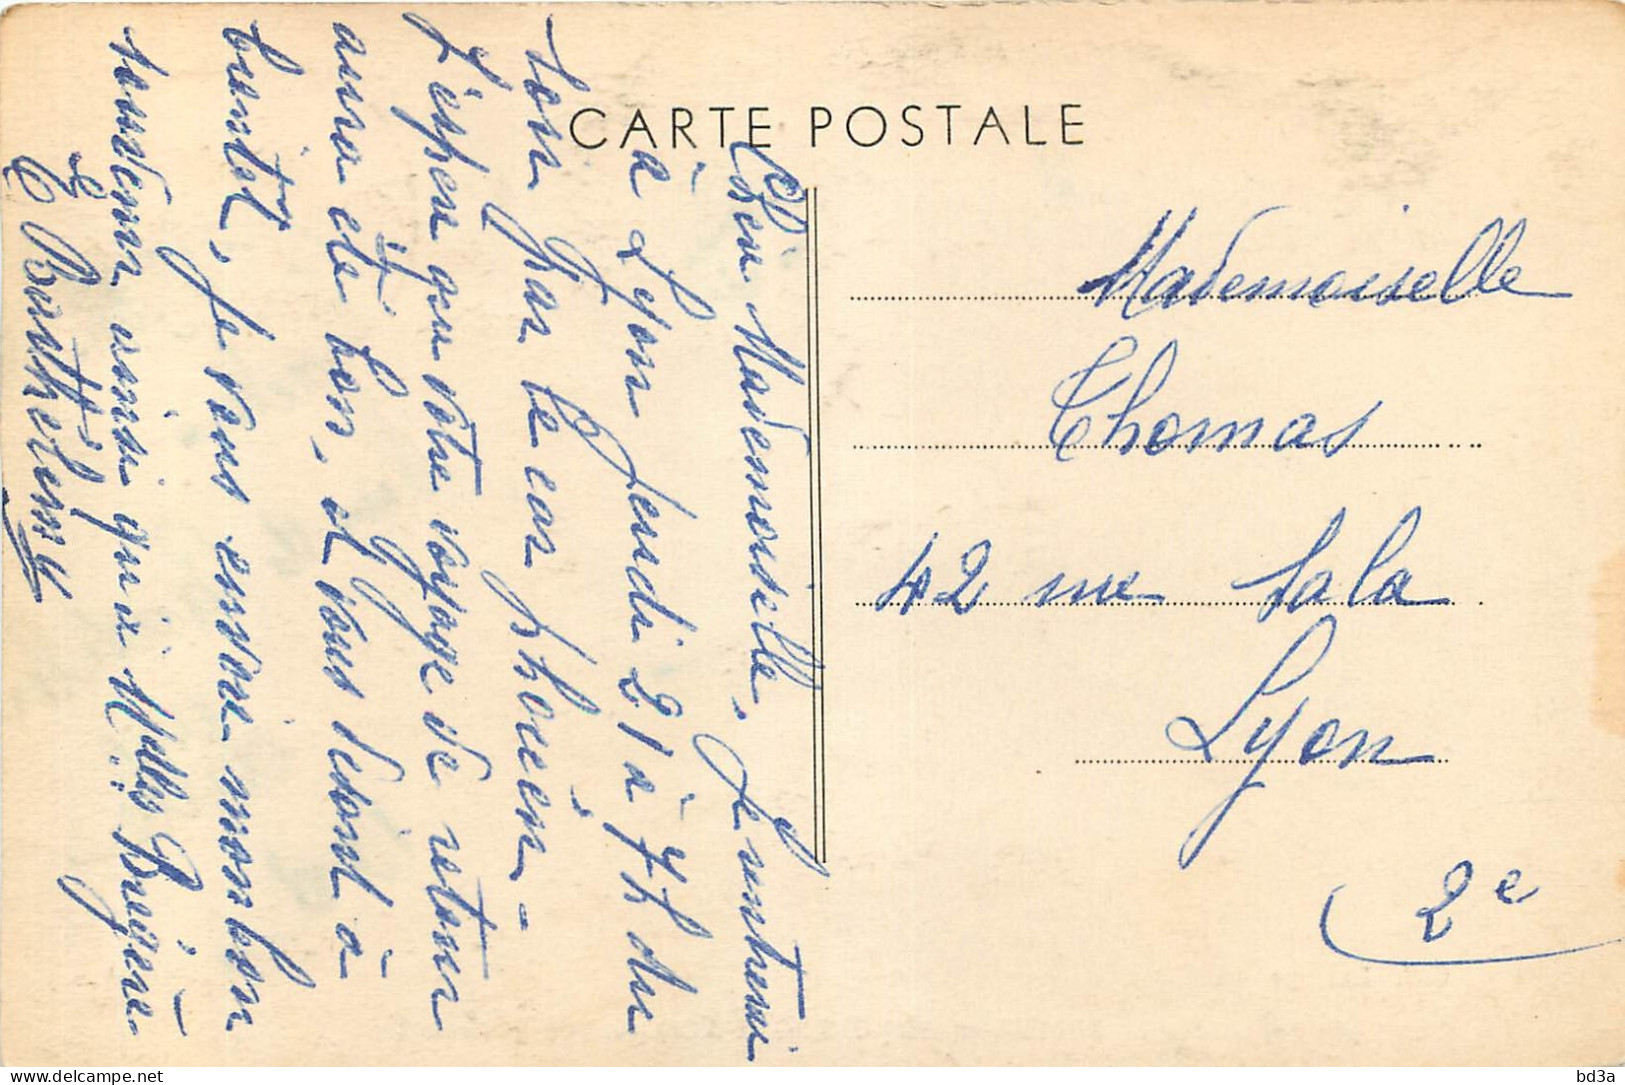 CARTE POSTALE
Chère Mademoiselle, Je rentrerai
à Lyon Jeudi 21 à 7h du
soir par le car phocéen -
J'espère que votre voyage de retour
aura été bon, et vous disant à
bientôt, je vous envoie mon bon
souvenir ainsi qu'à Melles Bregère
E Barthélemy
Mademoiselle
Thomas
42 rue Sala
Lyon
2e
bd3a